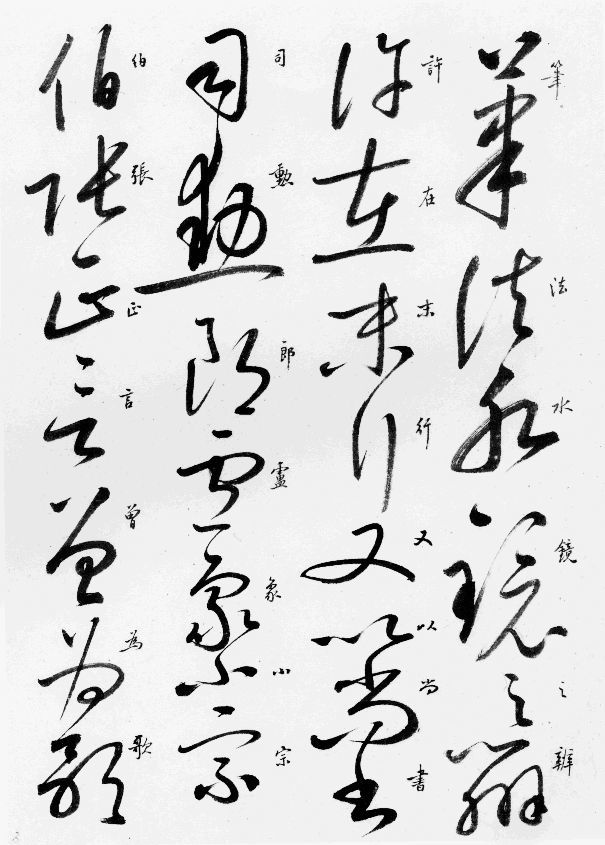 筆法水鏡之辧
許在末行又以尚書
司勳郎盧象小宗
伯張正言曾為歌